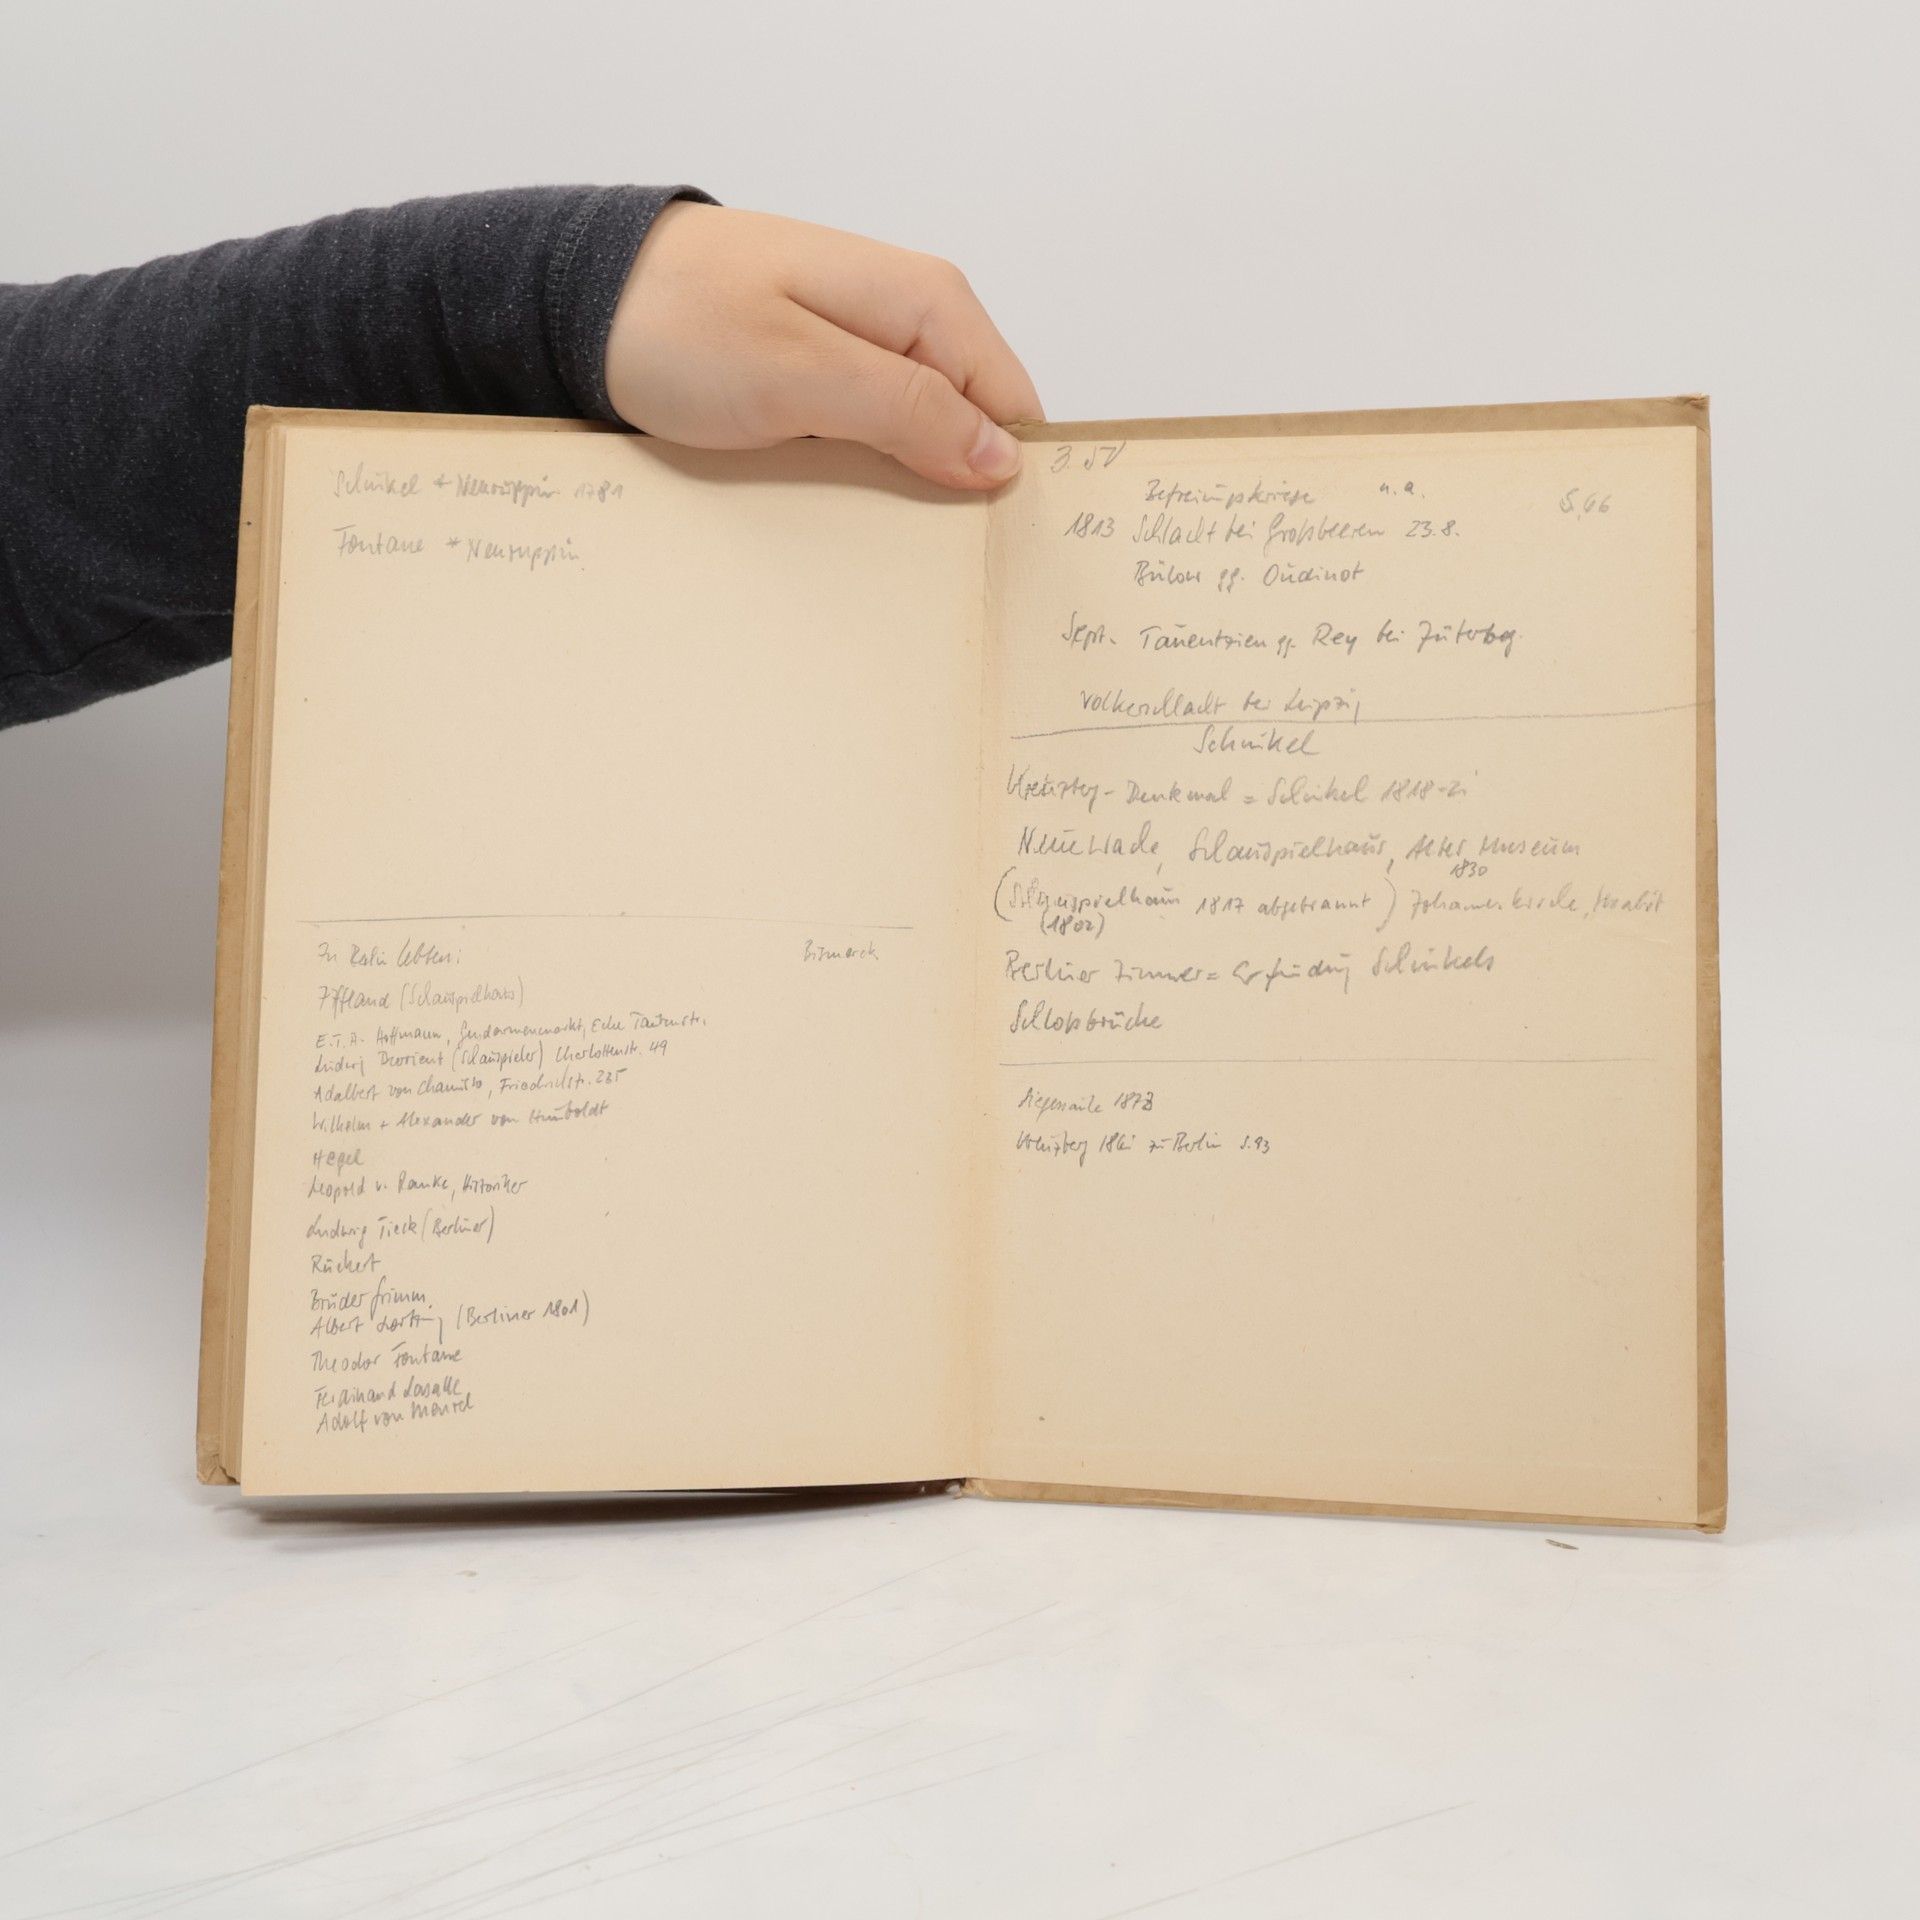 Schinkel * Neuruppin 1781
Fontane * Neuruppin
In Berlin lebten: Bismarck
Iffland (Schauspielhaus)
E.T.A. Hoffmann, Gendarmenmarkt, Ecke Taubenstr.
Ludwig Devrient (Schauspieler) Charlottenstr. 49
Adalbert von Chamisso, Friedrichstr. 235
Wilhelm + Alexander von Humboldt
Hegel
Leopold v. Ranke, Historiker
Ludwig Tieck (Berliner)
Rückert
Brüder Grimm
Albert Lortzing (Berliner 1801)
Theodor Fontane
Ferdinand Lasalle
Adolf von Menzel
Befreiungskriege u.a. S. 66
1813 Schlacht bei Großbeeren 23.8.
Bülow gg. Oudinot
Sept. Tauentzien gg. Ney bei Jüterbog
Völkerschlacht bei Leipzig
Schinkel
Kreuzberg-Denkmal = Schinkel 1818-21
Neue Wache, Schauspielhaus, Altes Museum
1830
(Schauspielhaus 1817 abgebrannt) Johanneskirche, Moabit
(1802)
Berliner Zimmer = Erfindung Schinkels
Schloßbrücke
Siegessäule 1873
Kreuzberg 1861 zu Berlin S. 93